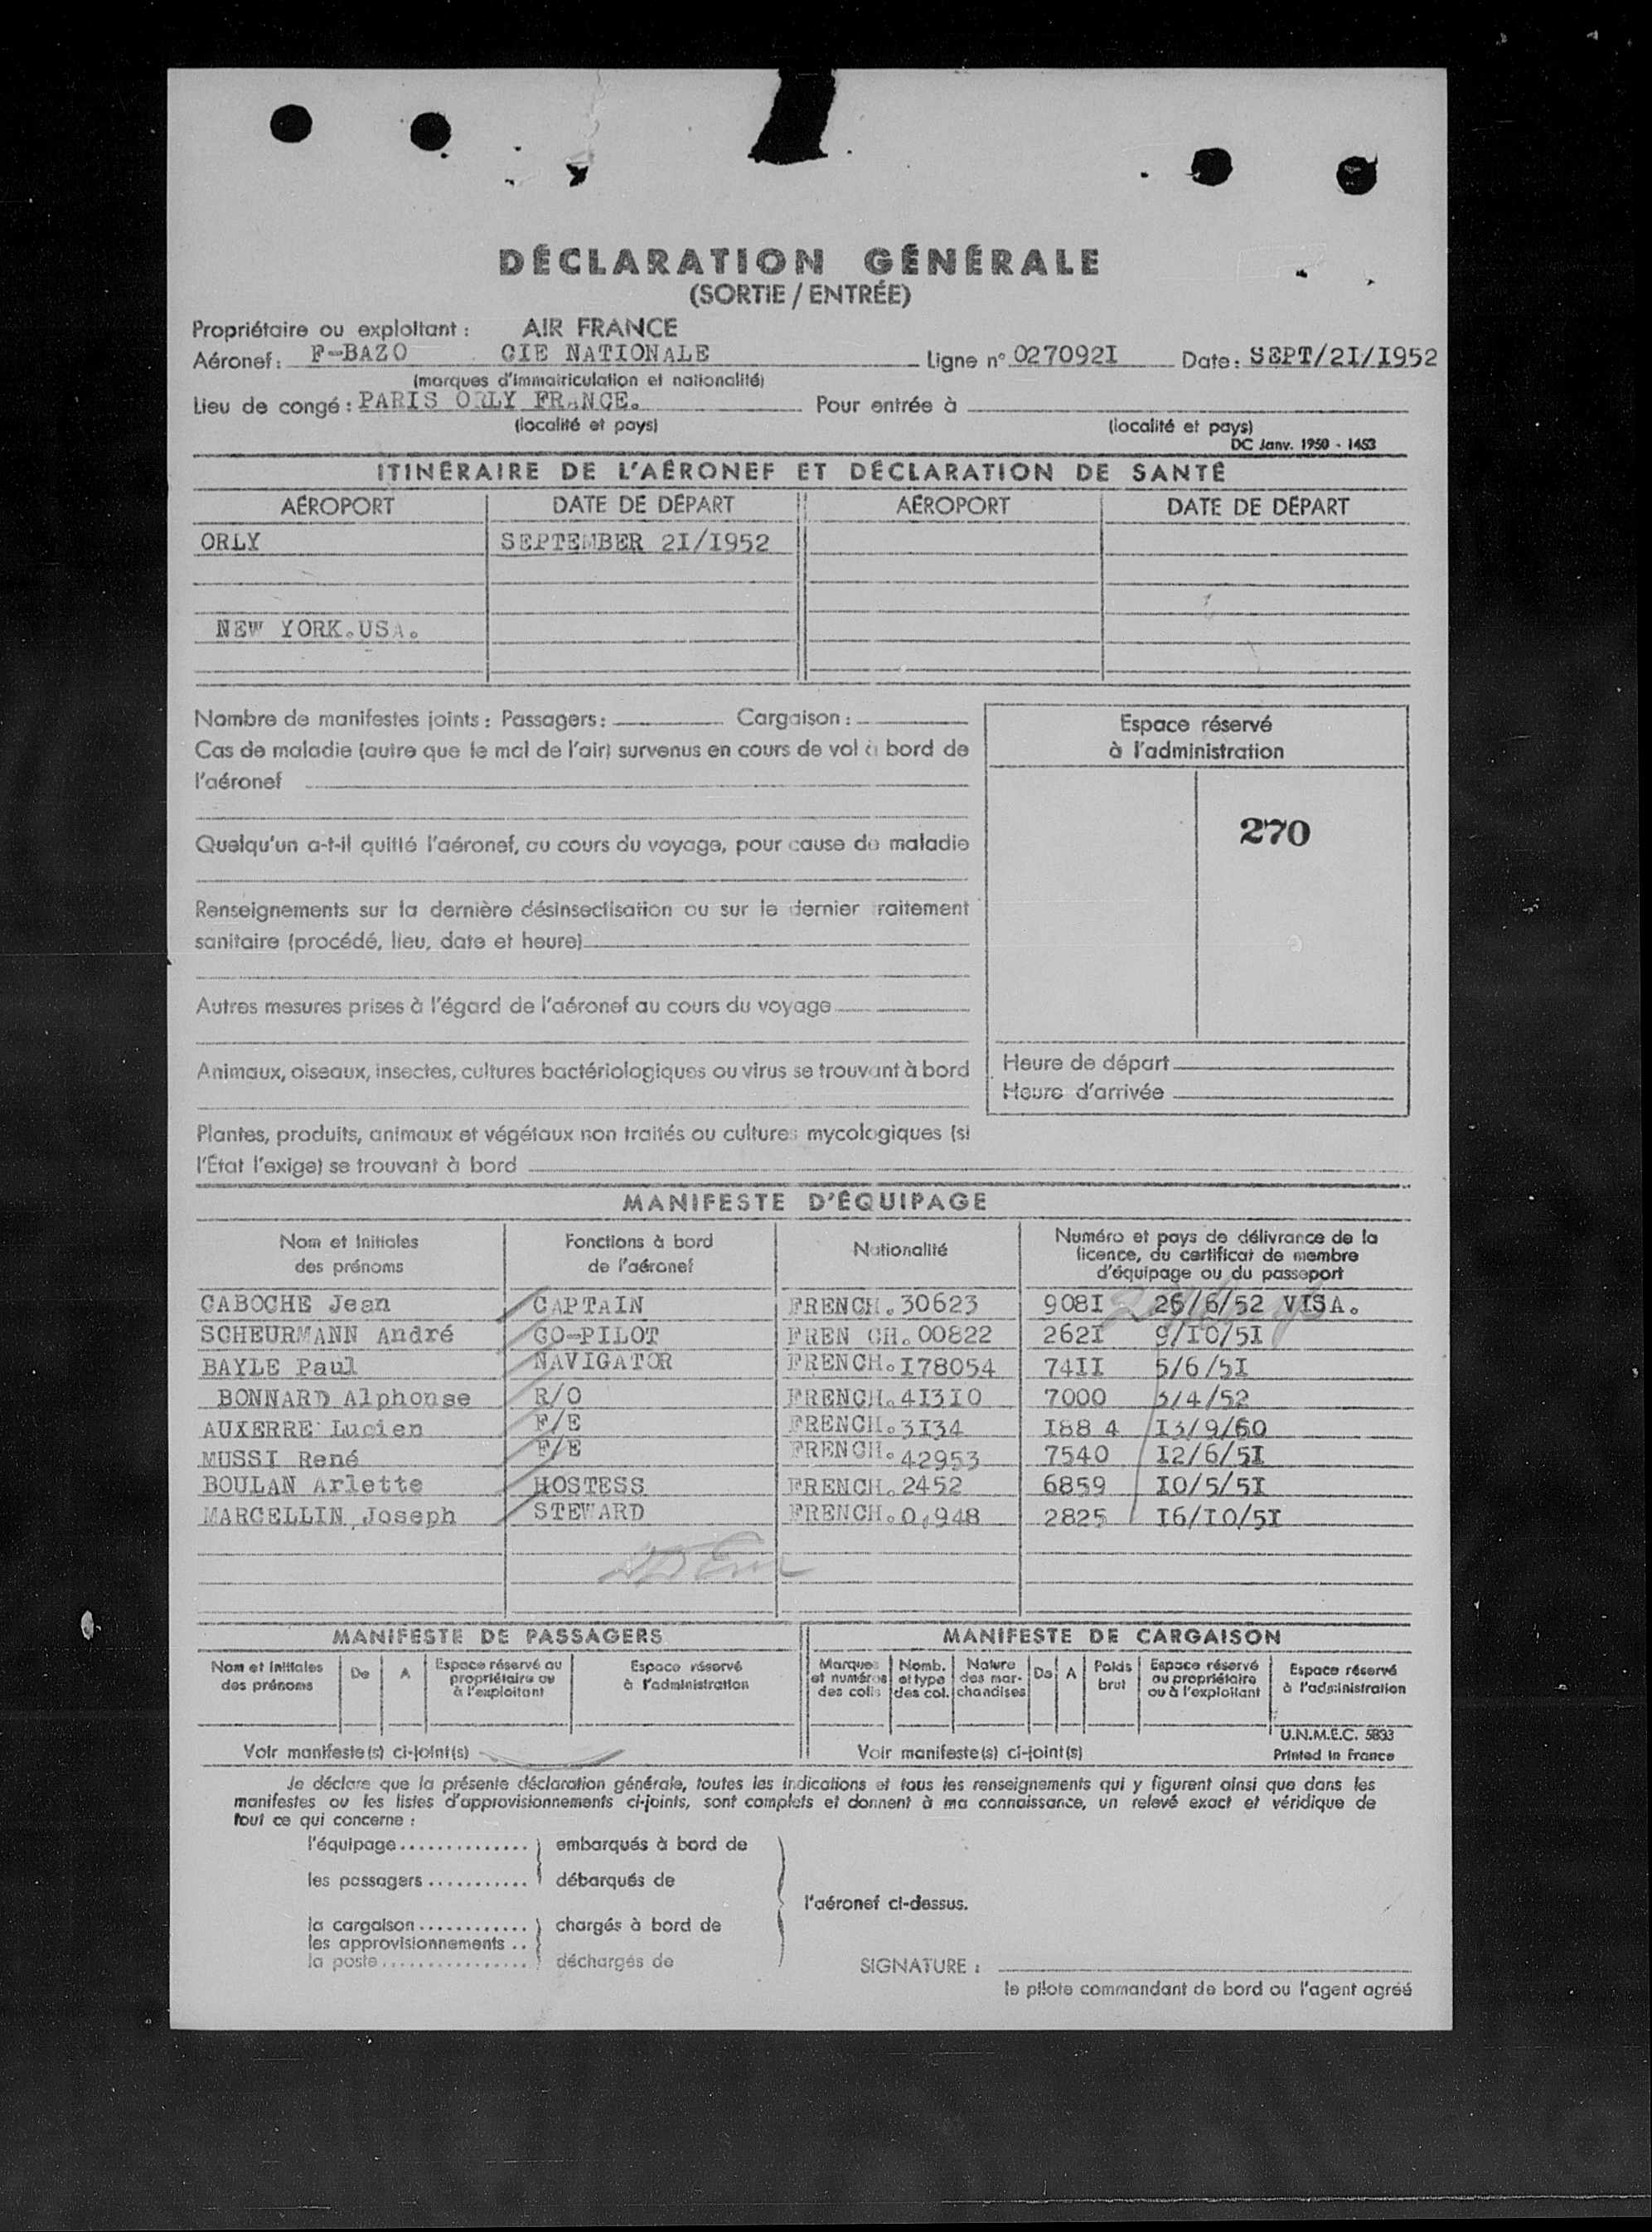 DÉCLARATION GÉNÉRALE
(SORTIE / ENTRÉE)
Propriétaire ou exploitant : AIR FRANCE
Aéronef : F-BAZO CIE NATIONALE Ligne n° 027092I Date : SEPT/2I/I952
(marques d'immatriculation et nationalité)
Lieu de congé : PARIS ORLY FRANCE. Pour entrée à
(localité et pays) (localité et pays)
DC Janv. 1950 - 1453
ITINÉRAIRE DE L'AÉRONEF ET DÉCLARATION DE SANTÉ
AÉROPORT DATE DE DÉPART AÉROPORT DATE DE DÉPART
ORLY SEPTEMBER 2I/I952
NEW YORK.USA.
Nombre de manifestes joints : Passagers : Cargaison :
Espace réservé
à l'administration
Cas de maladie (autre que le mal de l'air) survenus en cours de vol à bord de
l'aéronef
270
Quelqu'un a-t-il quitté l'aéronef, au cours du voyage, pour cause de maladie
Renseignements sur la dernière désinsectisation ou sur le dernier raitement
sanitaire (procédé, lieu, date et heure)
Autres mesures prises à l'égard de l'aéronef au cours du voyage
Animaux, oiseaux, insectes, cultures bactériologiques ou virus se trouvant à bord
Heure de départ
Heure d'arrivée
Plantes, produits, animaux et végétaux non traités ou cultures mycologiques (si
l'État l'exige) se trouvant à bord
MANIFESTE D'ÉQUIPAGE
Nom et Initiales des prénoms Fonctions à bord de l'aéronef Nationalité Numéro et pays de délivrance de la licence, du certificat de membre d'équipage ou du passeport
CABOCHE Jean CAPTAIN FRENCH.30623 908I 26/6/52 VISA.
SCHEURMANN André CO-PILOT FREN CH.00822 262I 9/IO/5I
BAYLE Paul NAVIGATOR FRENCH.I78054 74II 5/6/5I
BONNARD Alphonse R/O FRENCH.4I3IO 7000 3/4/52
AUXERRE Lucien F/E FRENCH.3I34 I88 4 I3/9/60
MUSSI René F/E FRENCH.42953 7540 I2/6/5I
BOULAN Arlette HOSTESS FRENCH.2452 6859 IO/5/5I
MARCELLIN Joseph STEWARD FRENCH.0,948 2825 I6/IO/5I
MANIFESTE DE PASSAGERS MANIFESTE DE CARGAISON
Nom et Initiales des prénoms De A Espace réservé au propriétaire ou à l'exploitant Espace réservé à l'administration Marques et numéros des colis Nomb. et type des col. Nature des mar- chandises De A Poids brut Espace réservé au propriétaire ou à l'exploitant Espace réservé à l'administration
U.N.M.E.C. 5833
Voir manifeste(s) ci-joint(s) Voir manifeste(s) ci-joint(s) Printed in France
Je déclare que la présente déclaration générale, toutes les indications et tous les renseignements qui y figurent ainsi que dans les
manifestes ou les listes d'approvisionnements ci-joints, sont complets et donnent à ma connaissance, un relevé exact et véridique de
tout ce qui concerne :
l'équipage .............. embarqués à bord de
les passagers ........... débarqués de
l'aéronef ci-dessus.
la cargaison ............ chargés à bord de
les approvisionnements ..
la poste ................ déchargés de
SIGNATURE :
le pilote commandant de bord ou l'agent agréé